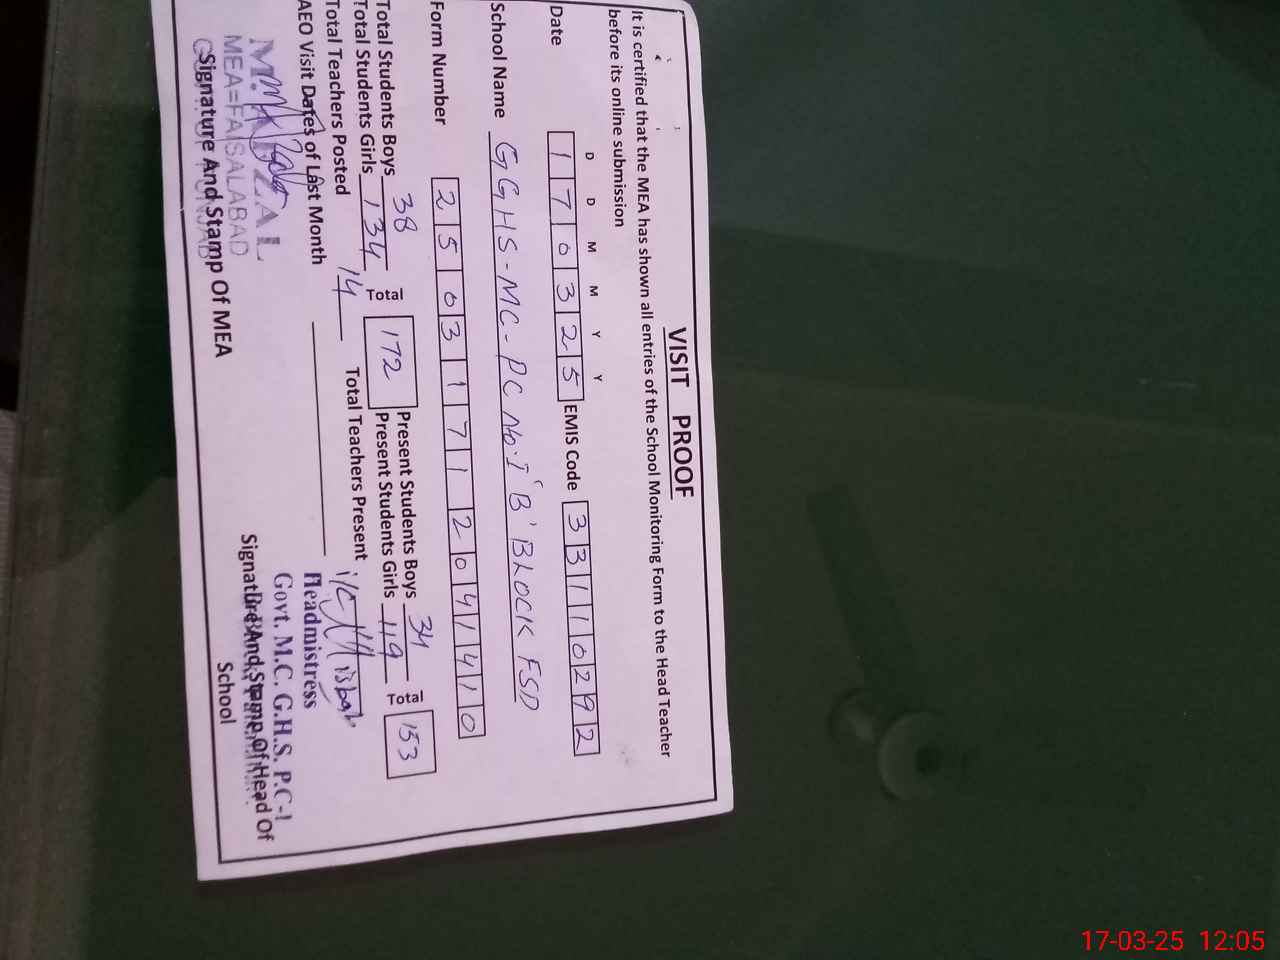 VISIT PROOF
It is certified that the MEA has shown all entries of the School Monitoring Form to the Head Teacher
before its online submission
D D M M Y Y
Date 1 7 0 3 2 5 EMIS Code 3 3 1 1 0 2 9 2
School Name GGHS-MC-PC No.I 'B' BLOCK FSD
Form Number 2 5 0 3 1 7 1 2 0 4 1 4 1 0
Total Students Boys 38 Total 172 Present Students Boys 34 Total 153
Total Students Girls 134 Present Students Girls 119
Total Teachers Posted 14 Total Teachers Present
AEO Visit Dates of Last Month
M. AFZAL
MEA=FAISALABAD
Signature And Stamp Of MEA
Headmistress
Govt. M.C. G.H.S. P.C-I
Signature And Stamp Of Head Of
School
17-03-25 12:05